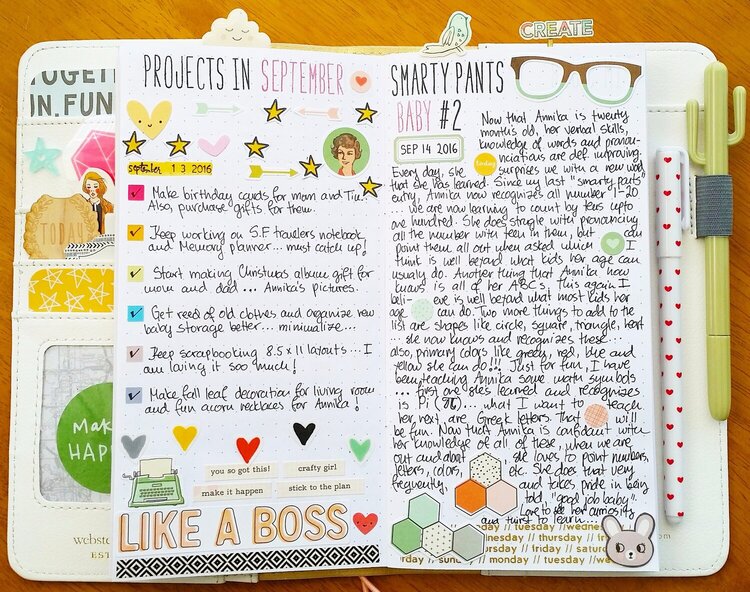 CREATE
TOGETH
UN.FUN
TODAY
Mak
HAPP
webste
EST
PROJECTS IN SEPTEMBER
september 13 2016
Make birthday cards for mom and Tia!
Also, purchase gifts for them.
Keep working on S.F travelers notebook
and Memory planner... must catch up!
Start making Christmas album gift for
mom and dad... Annika's pictures.
Get reed of old clothes and organize new
baby storage better... minimalize...
Keep scrapbooking 8.5 x 11 layouts... I
am loving it soo much!
Make fall leaf decoration for living room
and fun acorn necklaces for Annika!
you so got this!
crafty girl
make it happen
stick to the plan
LIKE A BOSS
SMARTY PANTS
BABY #2
SEP 14 2016
today
Now that Annika is twenty
months old, her verbal skills,
knowledge of words and pronun-
nciations are def. improving.
Every day, she surprises we with a new word
that she has learned. Since my last "smarty pants"
entry, Annika now recognizes all number 1-20
... we are now learning to count by tens upto
one hundred. She does strugle with pronouncing
all the number with teen in them, but could
point them all out when asked which I
think is well beyard what kids her age can
usually do. Another thing that Annika now
knows is all of her ABCs, this again I
beli- eve is well beyard what most kids her
age can do. Two more things to add to the
list are shapes like circle, square, triangle, heart
... she now knows and recognizes these...
also, primary colors like green, red, blue and
yellow she can do!!! Just for fun, I have
been teaching Annika some math symbols
... first one she's learned and recognizes
is Pi (π)... what I want to teach
her next are Greek letters. That will
be fun. Now that Annika is confidant with
her knowledge of all of these, when we are
out and about, she loves to point numbers,
letters, colors, etc. She does that very
frequently, and takes pride in being
told, "good job baby".
Love to see her curiosity
and thirst to learn...
day // tuesday // wedne
// wednesday // thursday // f
// thursday // friday // satur
rday // sun // monday // tuesday // we